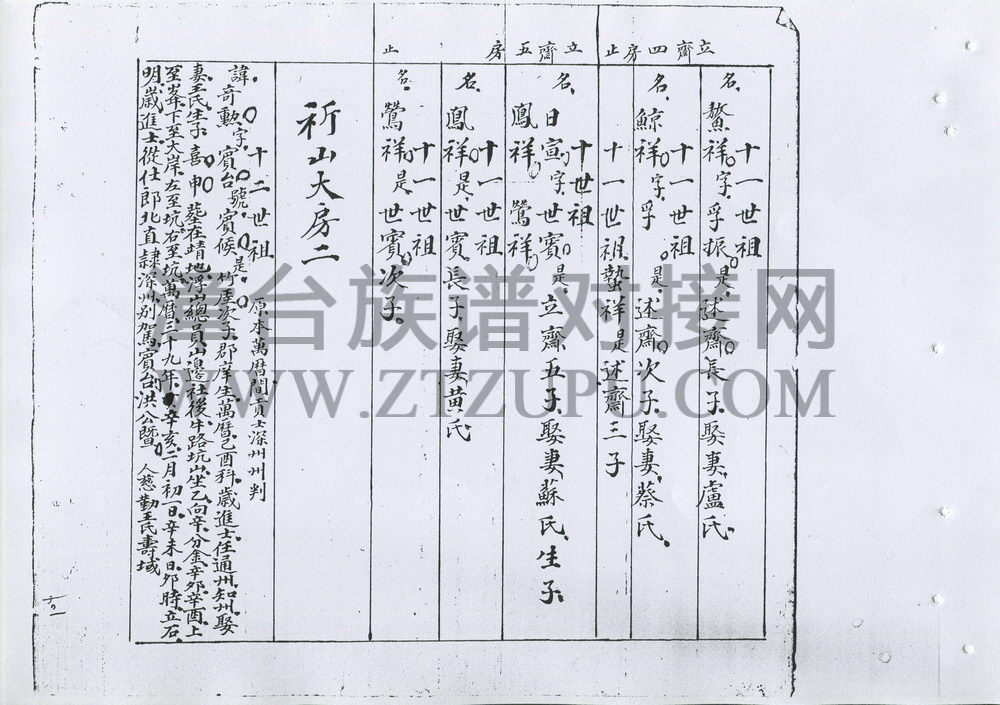 立齋四房止
立齋五房止
十一世祖
名鰲祥字孚振是述齋長子娶妻盧氏
十一世祖
名鯨祥字孚是述齋次子娶妻蔡氏
十一世祖蟄祥是述齋三子
十世祖
名日宣字世賓是立齋五子娶妻蘇氏生子
鳳祥鶯祥
十一世祖
名鳳祥是世賓長子娶妻黃氏
十一世祖
名鶯祥是世賓次子
祈山大房二
十二世祖
原本萬曆間貢士深州州判
諱奇勳字賓台號賓候是竹厓次子郡庠生萬曆己酉科歲進士任通州知州娶
妻王氏生子喜申葬在靖地浮山總員山邊社後牛路坑山坐乙向辛分金辛夘辛酉上
至峯下至大岸左至坑右至坑萬曆三十九年辛亥二月初一日辛未日夘時立石
明歲進士從仕郎北直隷深州別駕賓台洪公暨人慈勤王氏壽域
譜台族谱对接网
WWW.ZTZUPU.COM